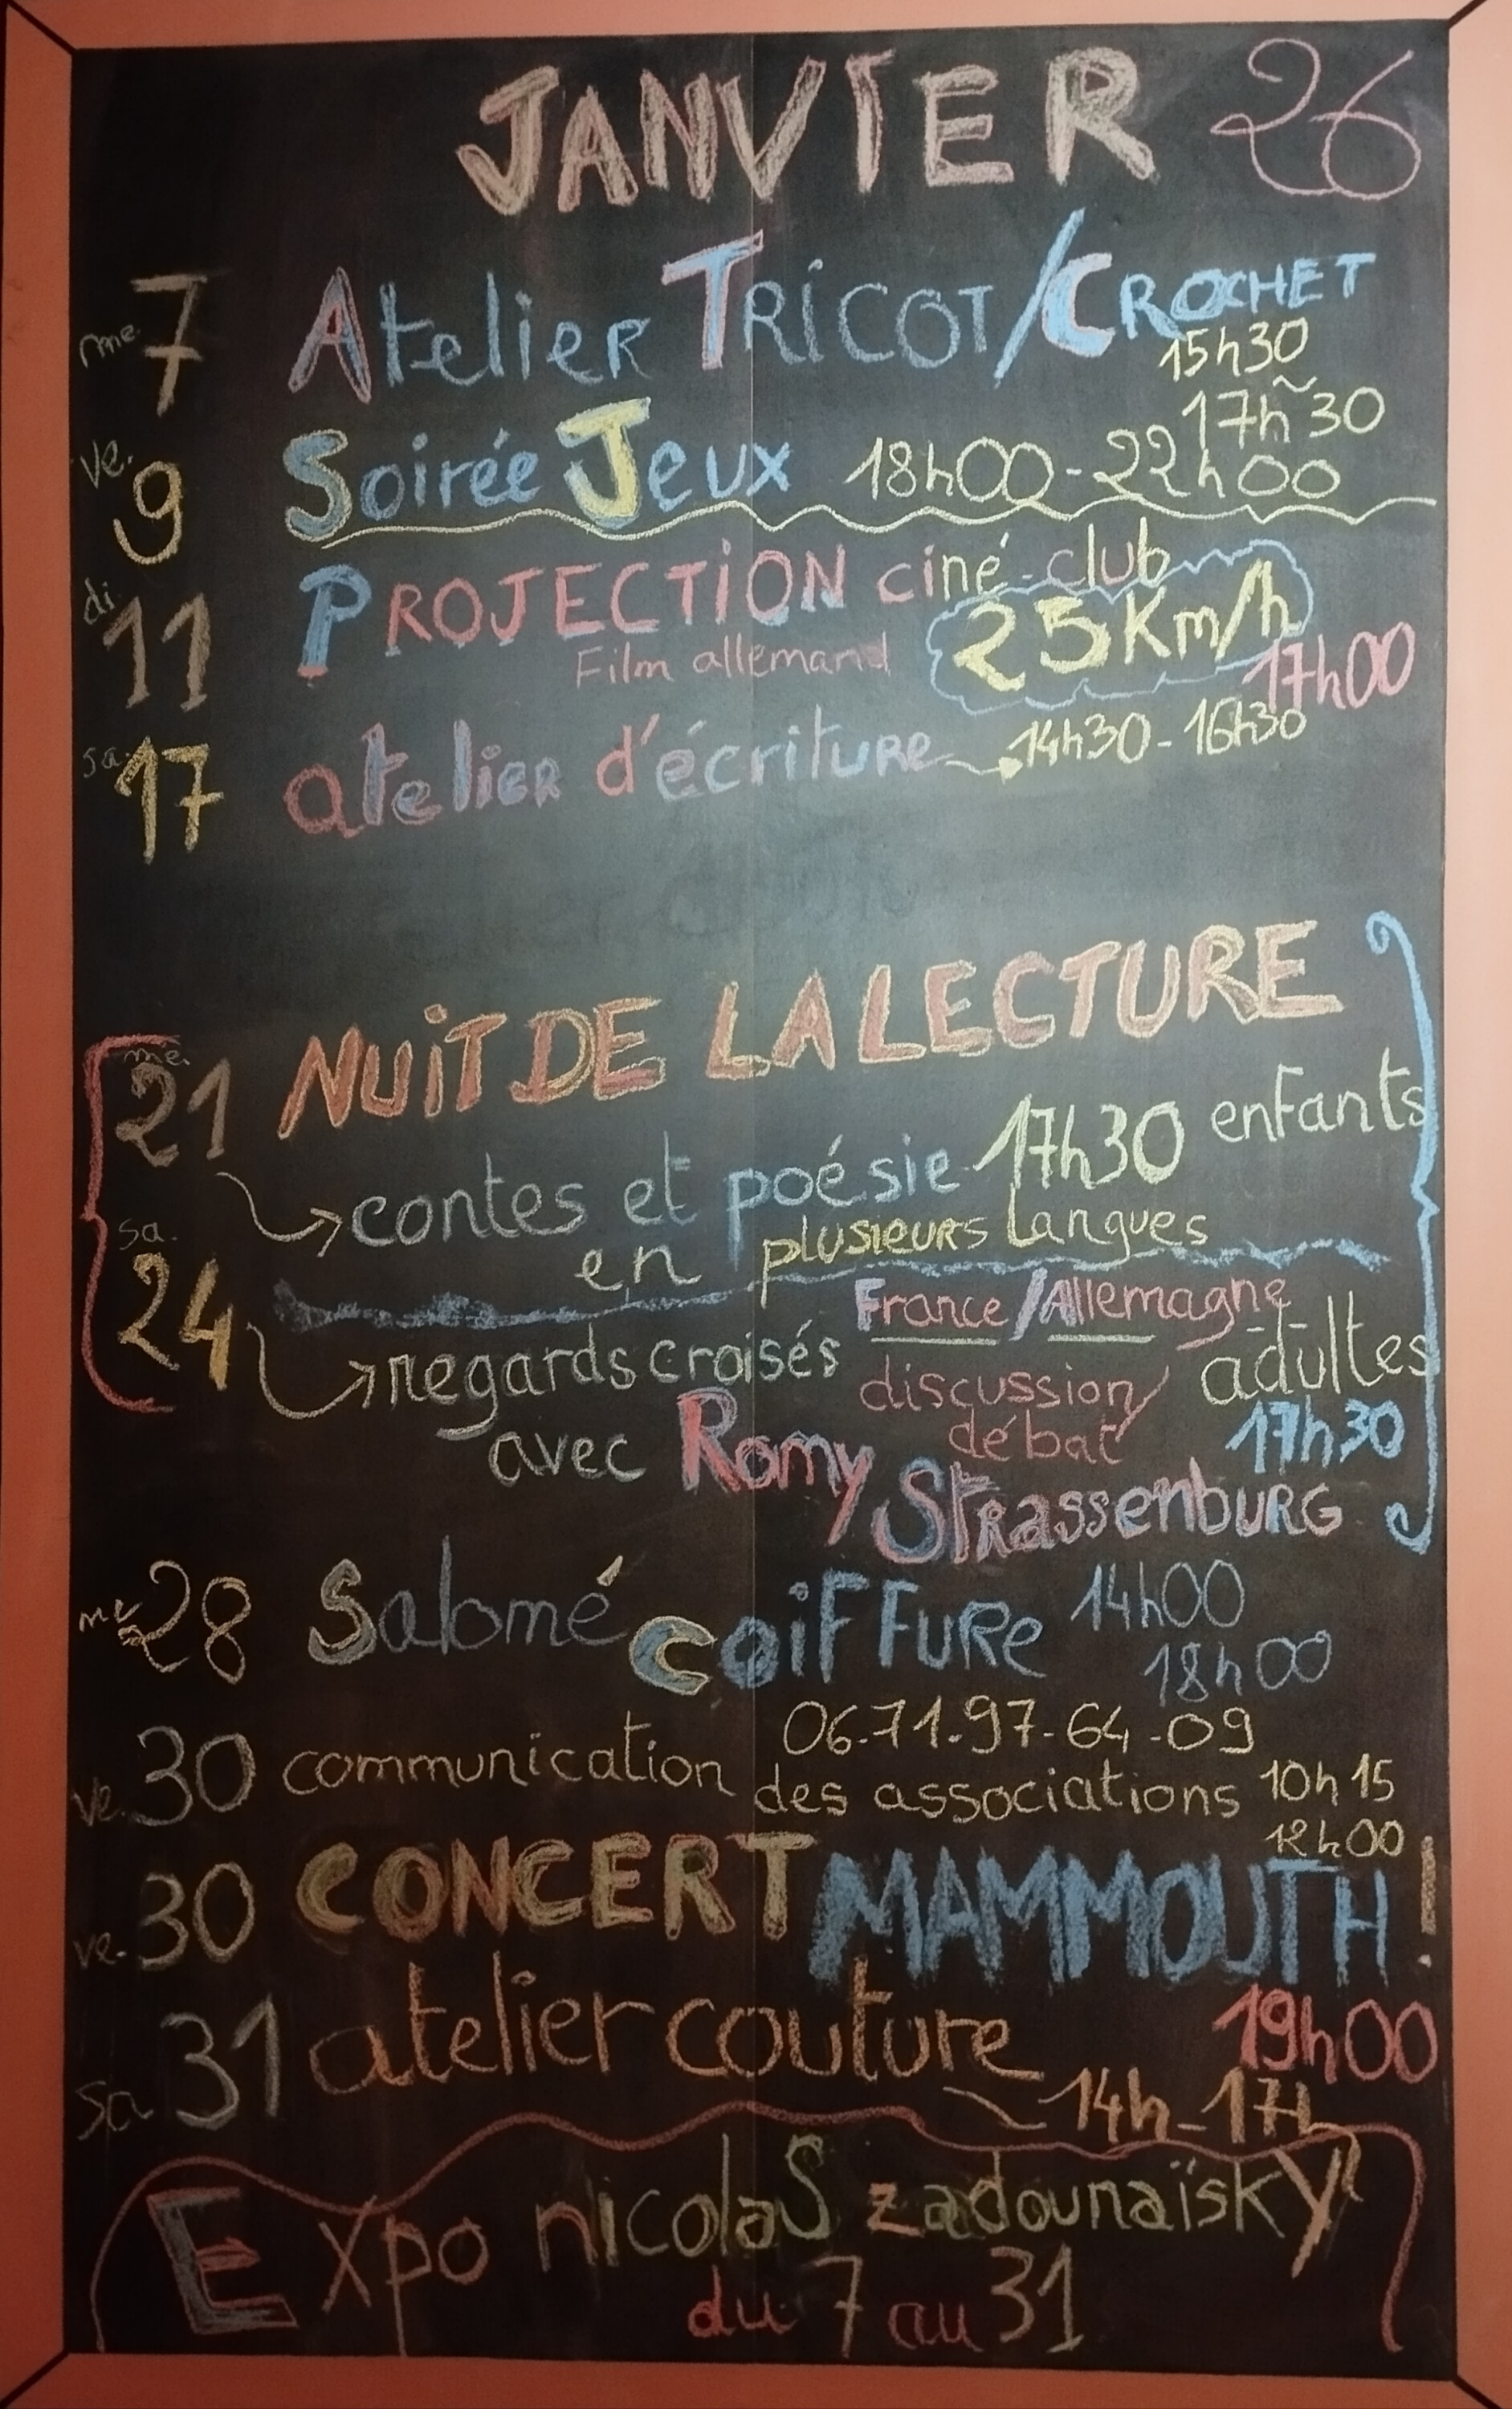 JANVIER 26
me. 7 Atelier TRICOT/CROCHET
15h30
~
17h30
ve. 9 Soirée Jeux 18h00-22h00
di 11 PROJECTION ciné-club
Film allemand 25 Km/h
17h00
sa. 17 atelier d'écriture 14h30-16h30
NUIT DE LA LECTURE
me. 21
contes et poésie 17h30 enfants
en plusieurs langues
sa. 24
regards croisés France/Allemagne
discussion/ adultes
débat 17h30
avec Romy
Strassenburg
28 Salomé coiffure 14h00
18h00
06.71.97-64-09
ve. 30 communication des associations 10h15
12h00
ve. 30 CONCERT MAMMOUTH!
19h00
Sa 31 atelier couture
14h-17h
Expo nicolaS zadounaïsky
du 7 au 31